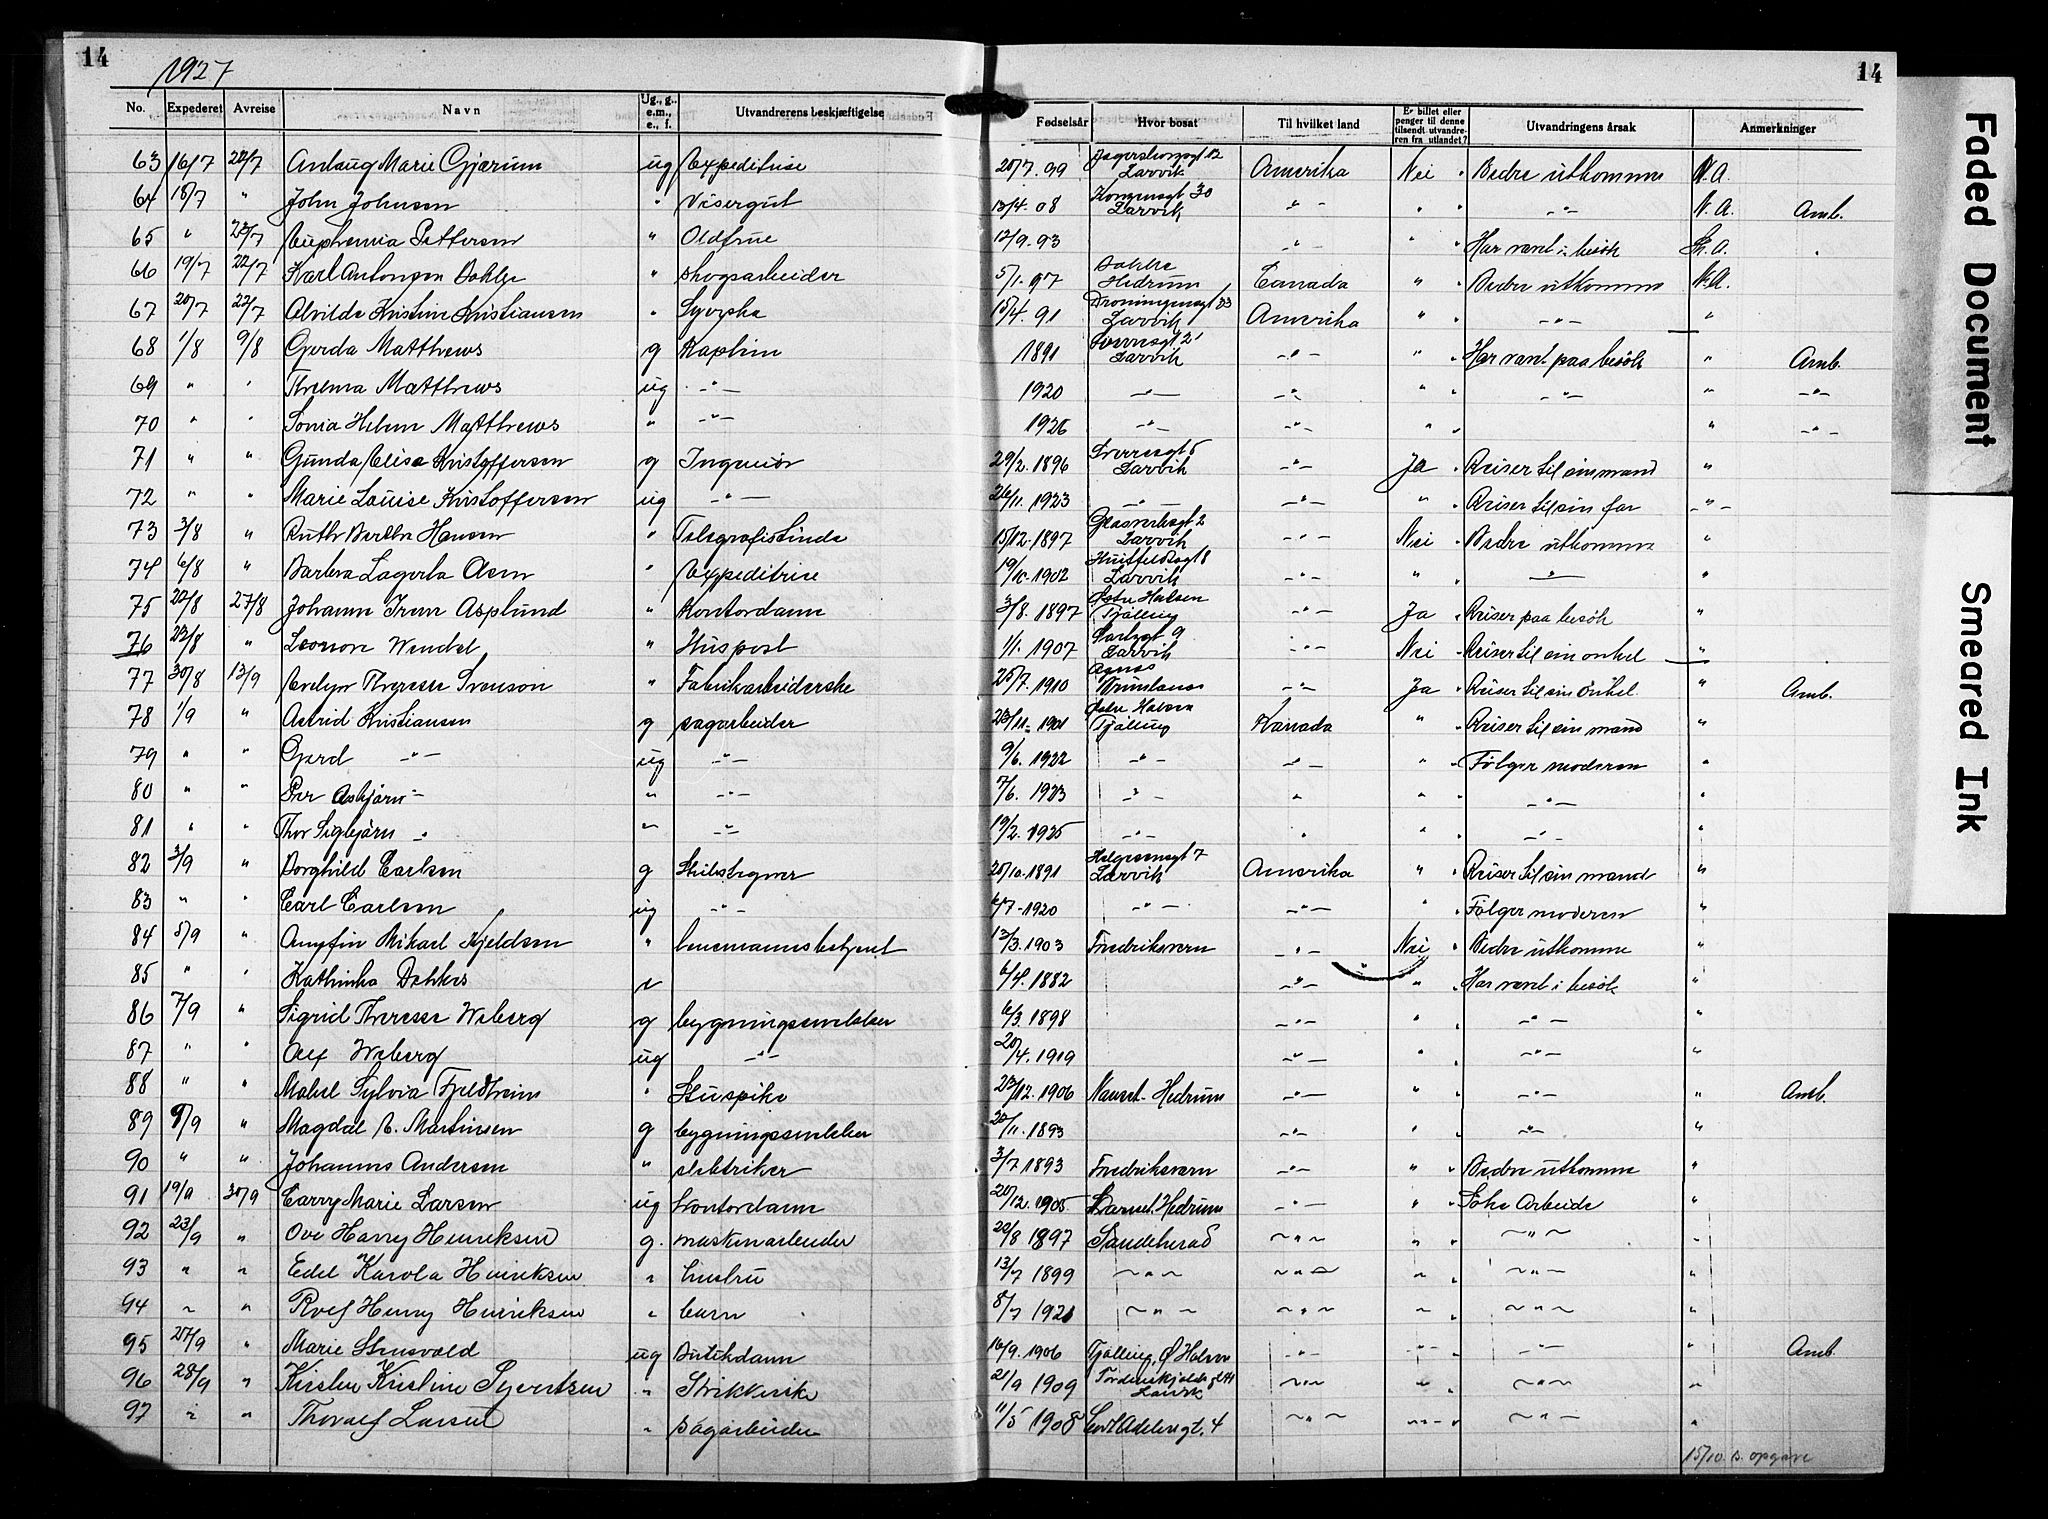 14
1927
14
No. Expederet Avreise Navn Ug., g., e.m., e., f. Utvandrerens beskjæftigelse Fødselsår Hvor bosat Til hvilket land Er billet eller penger til denne tilsendt utvandreren fra utlandet? Utvandringens årsak Anmerkninger
63 16/7 22/7 Marie Gjærum ug Expeditrise 20/7. 99 Larvik Amerika Nei Bedre utkomme N.A.
64 18/7 " John Johnsen " Visergut 13/4. 08 Kongensgt 30 Larvik " " " " N.A. Amb.
65 " Euphemia Pettersen " Oldfrue 12/9. 93 " " Har været i besök
66 19/7 22/7 Karl Antonsen " skogsarbeider 5/1. 97 Hedrum Canada " Bedre utkomme N.A.
67 20/7 22/7 Alvilde Kristine Kristiansen " Syerske 15/4. 91 Dronningensgt Larvik Amerika " " "
68 1/8 9/8 Gerda Matthews g Kaptein 1891 Larvik " " Har været paa besök " Amb.
69 " " Thelma Matthews ug " 1920 " " " " " "
70 " " Sonia Helen Matthews " " 1926 " " " " "
71 " " Gunda Elise Kristoffersen g Ingeniör 29/2. 1896 Larvik " Ja Reiser til sin mand "
72 " " Marie Louise Kristoffersen ug " 26/11. 1923 " " " Reiser til sin far "
73 3/8 " Ruth Berthe Hansen " Telegrafistinde 15/12. 1897 Glasverksgt 2 Larvik " Nei Bedre utkomme "
74 6/8 " Barbra Lagerta Asen " Expeditrise 19/10. 1902 Huitfeldtsgt 8 Larvik " " " "
75 22/8 27/8 Johanne Irene Asplund " Kontordame 3/8. 1897 Østre Halsen Tjölling " Ja Reiser paa besök "
76 23/8 " Leonore Wendel " Huspost 1/1. 1907 9 Larvik " Nei Reiser til sin onkel "
77 30/8 13/9 Evelyn Therese Svenson " Fabrikarbeiderske 25/7. 1910 Agnes Brunlanes " Ja Reiser til sin onkel " Amb.
78 1/9 " Astrid Kristiansen g sagarbeider 23/11. 1901 Østre Halsen Tjölling Kanada " Reiser til sin mand "
79 " " Gerd " ug " 9/6. 1922 " " " Følger moderen "
80 " " Per Asbjørn " " " 7/6. 1923 " " " " "
81 " " Thor Sigbjørn " " " 19/2. 1925 " " " " "
82 3/9 " Borghild Carlsen g Skibstegner 20/10. 1891 Helgesensgt 7 Larvik Amerika " Reiser til sin mand "
83 " " Carl Carlsen ug " 6/7. 1920 " " " Følger moderen "
84 5/9 " Arnfin Mikael Kjeldsen " lensmannsbetjent 13/3. 1903 Fredriksvern " Nei Bedre utkomme "
85 " " Kathinka Dahkes 6/4. 1882 " " Har været i besök "
86 7/9 " Sigrid Therese Weberg g bygningssnekker 6/3. 1898 " " " "
87 " " Alf Weberg ug " 20/4. 1919 " " " "
88 " " Mabel Sylvia Fjeldheim " Stuepike 23/12. 1906 Nanset Hedrum " " " " Amb.
89 8/9 " Magdal E. Martinsen g bygningssnekker 20/11. 1893 " " " "
90 " " Johannes Andersen " elektriker 3/7 1893 Fredriksvern " " Bedre utkomme "
91 19/9 30/9 Carry Marie Larsen ug kontordame 20/12. 1905 Nanset. Hedrum " " Søke Arbeide "
92 23/9 " Ove Harry Henriksen g. maskinarbeider 22/8 1897 Sandeherad " " " "
93 " " Edel Karola Henriksen " hustru 13/7 1899 " " " " "
94 " " Rolf Henry Henriksen " barn 8/7 1921 " " " " "
95 27/9 " Marie Stensvold ug Butikdame 16/9. 1906 Tjølling, Ø Halsen " " " " Amb.
96 28/9 " Kirsten Kristine Syvertsen " Strikkerske 21/9 1909 Tordenskjoldsgt Larvik " " "
97 " " Thoralf Larsen " Sagarbeider 11/5 1908 Cort Adelersgt. 4 " " " "
15/10. s. opgave
Faded Document
Smeared Ink